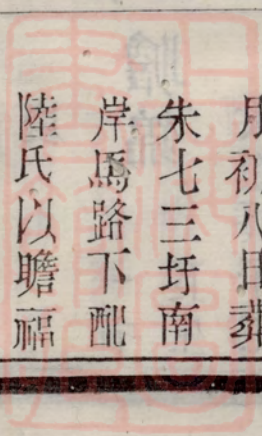 月初八日葬
朱七三圩南
岸馬路下配
陸氏以瞻福